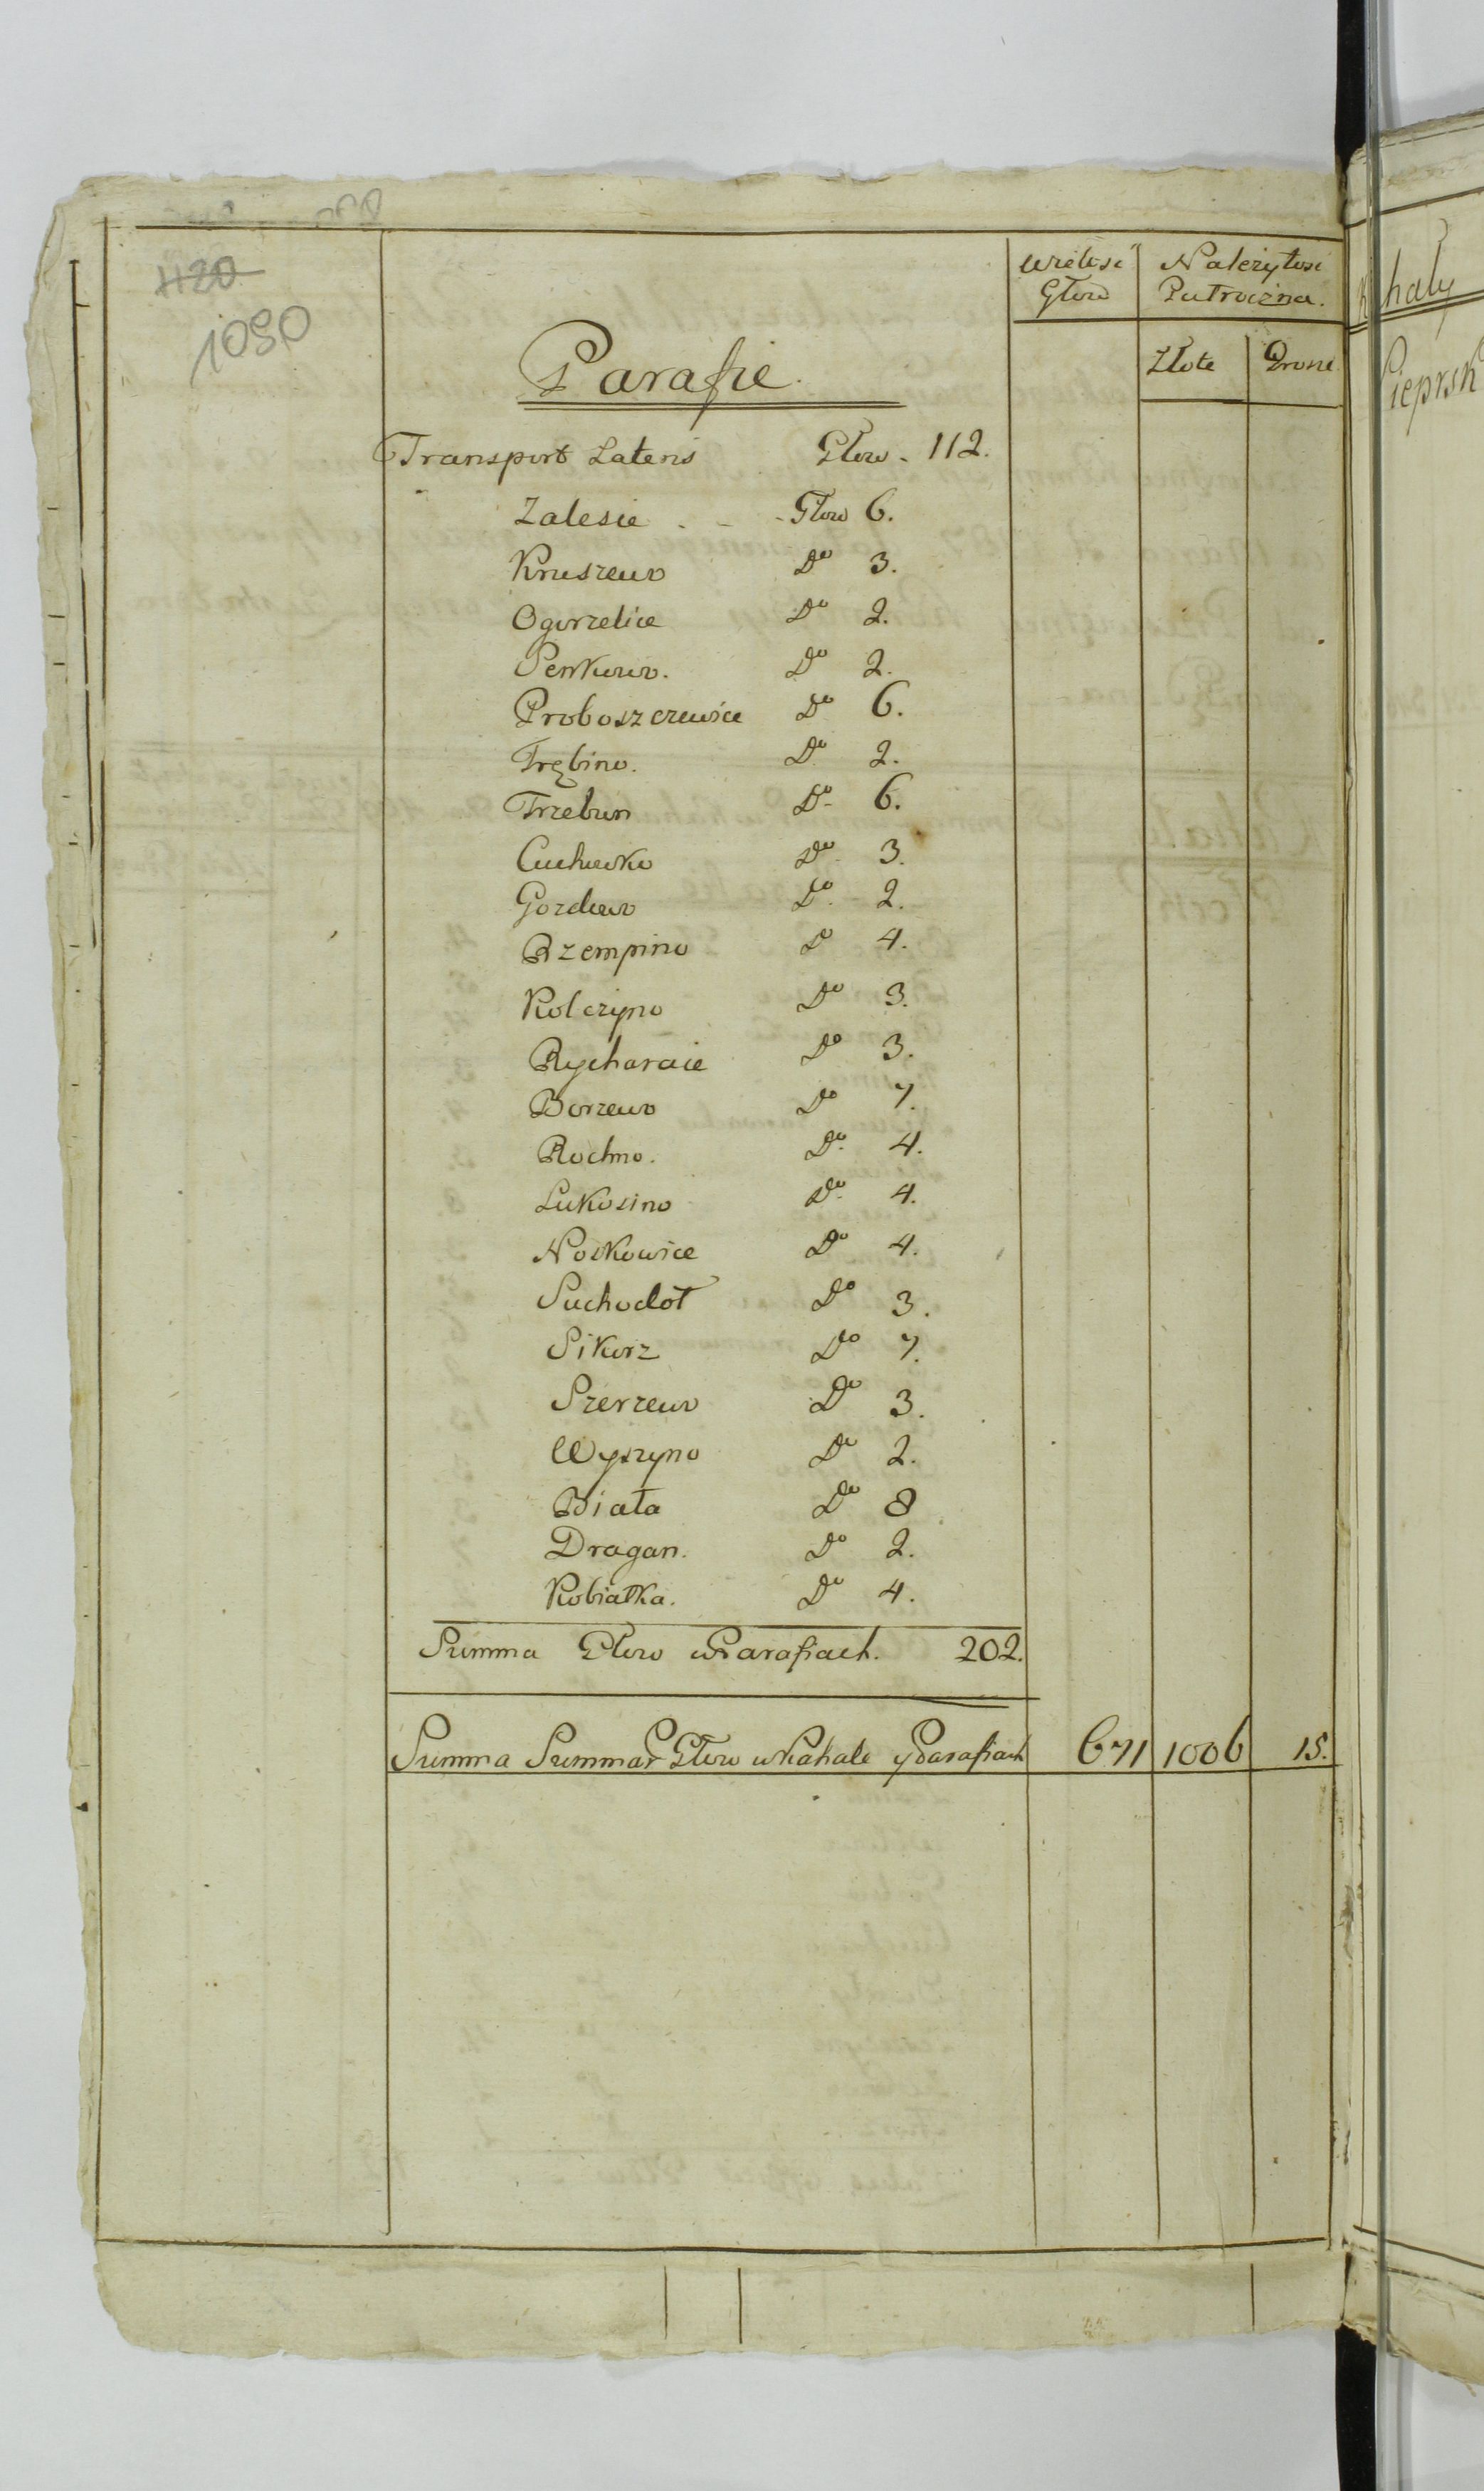 420
1090
Wielość Głow
Należytość Pułroczna.
Złote
Grosze
Parafie.
Transport Lateris Głow - 112.
Zalesie - - - Głow 6.
Kruszewo Do 3.
Ogorzelice Do 2.
Penkowo. Do 2.
Proboszczewice Do 6.
Trębino. Do 2.
Trzebun Do 6.
Ciechowko Do 3.
Gozdowo Do 2.
Rzempino Do 4.
Kolczyno Do 3.
Rycharcie Do 3.
Borzewo Do 7.
Rochno. Do 4.
Łukosino Do 4.
Noskowice Do 4.
Suchodoł Do 3.
Sikorz Do 7.
Szerzewo Do 3.
Wyszyno Do 2.
Biała Do 8
Dragan. Do 2.
Kobiałka. Do 4.
Summa Głow w Parafiach. 202.
Summa Summar Głow w Kahale y Parafiach 671 1006 15.
haly